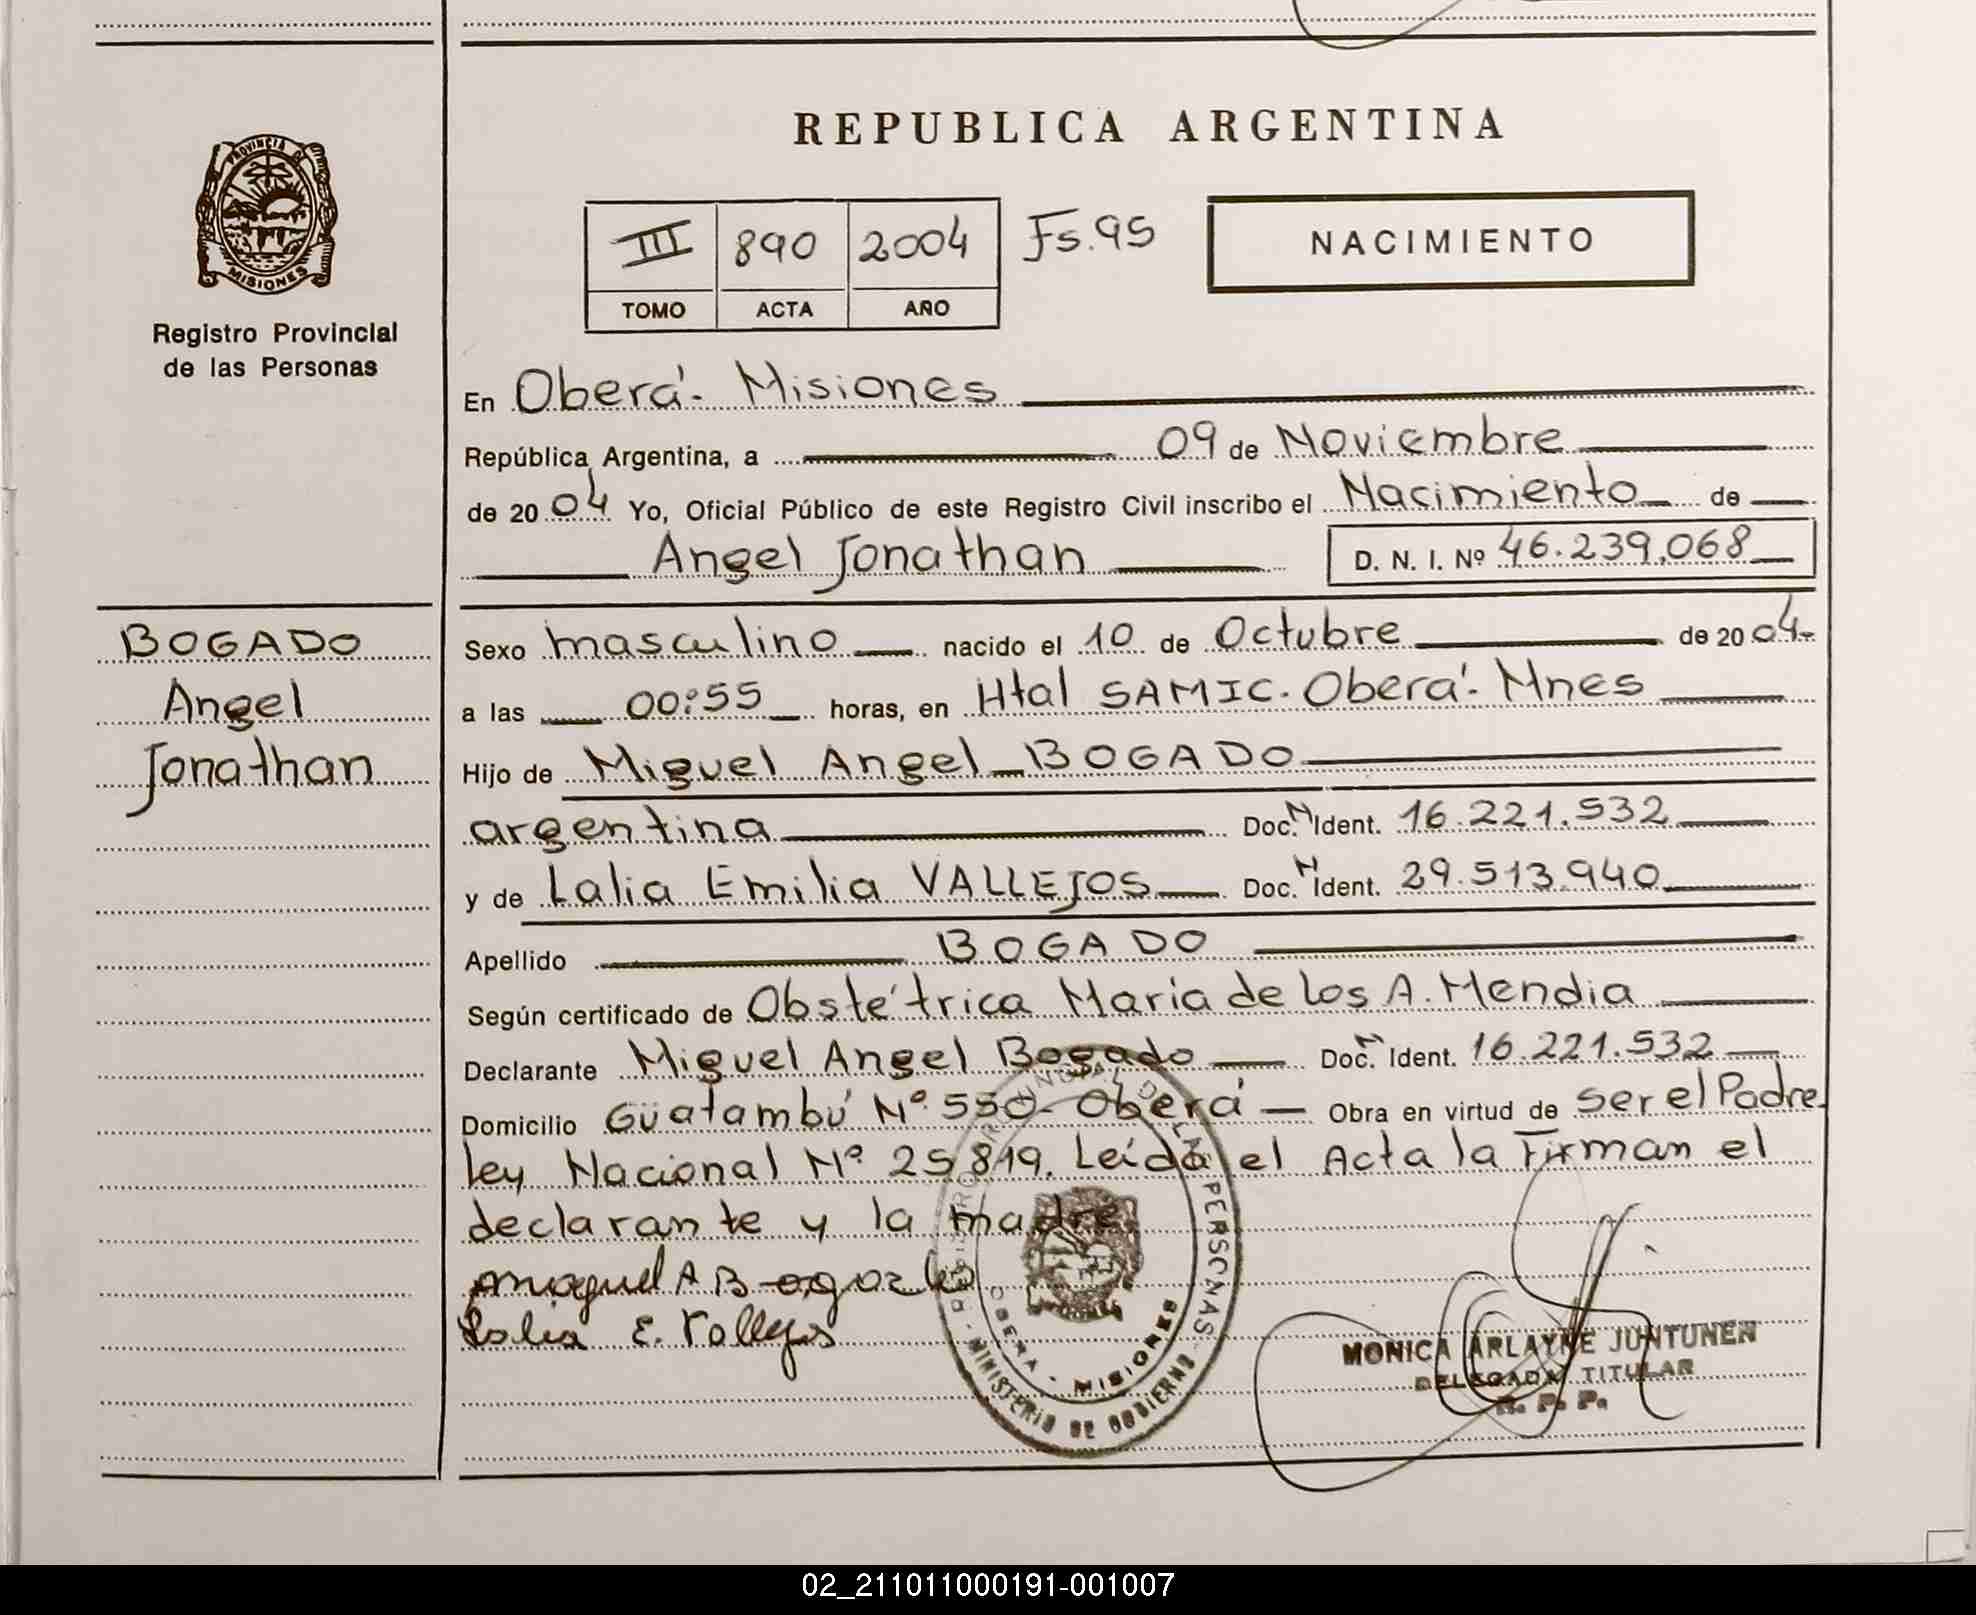 REPUBLICA ARGENTINA
PROVINCIA DE
MISIONES
Registro Provincial
de las Personas
III 890 2004 Fs.95
TOMO ACTA AÑO
NACIMIENTO
En Oberá.- Misiones
República Argentina, a 09 de Noviembre
de 2004 Yo, Oficial Público de este Registro Civil inscribo el Nacimiento de
Angel Jonathan D. N. I. Nº 46.239.068
BOGADO
Angel
Jonathan
Sexo masculino nacido el 10 de Octubre de 2004.-
a las 00:55 horas, en Htal SAMIC. Oberá.- Mnes
Hijo de Miguel Angel BOGADO
argentina Doc. N Ident. 16.221.532
y de Lalia Emilia VALLEJOS Doc. N Ident. 29.513.940
Apellido BOGADO
Según certificado de Obstétrica Maria de los A. Mendia
Declarante Miguel Angel Bogado Doc. N Ident. 16.221.532
Domicilio Güatambú Nº 550- Oberá Obra en virtud de ser el Padre
Ley Nacional Nº 25.819. Leída el Acta la Firman el
declarante y la madre.
Miguel A Bogado
Lalia E. Vallejos
DE LAS PERSONAS - MINISTERIO DE GOBIERNO
OBERA - MISIONES
MONICA ARLAYNE JUNTUNEN
DELEGADA TITULAR
R. P. P.
02_211011000191-001007